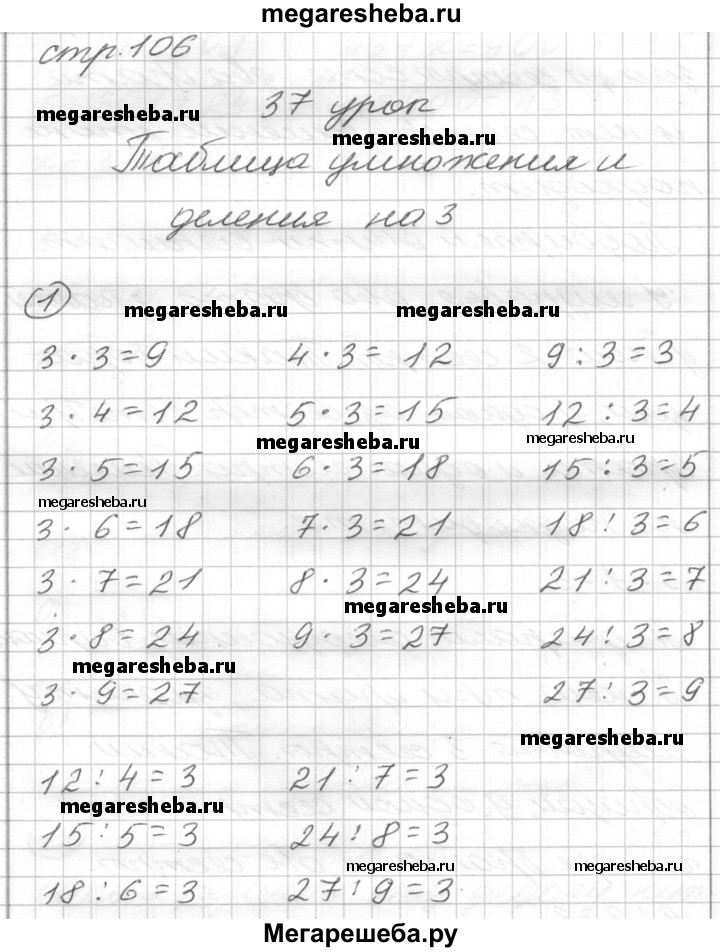 megaresheba.ru
стр. 106
megaresheba.ru
37 урок
megaresheba.ru
Таблица умножения и
деления на 3
1
megaresheba.ru megaresheba.ru
3 · 3 = 9 4 · 3 = 12 9 : 3 = 3
3 · 4 = 12 5 · 3 = 15 12 : 3 = 4
megaresheba.ru megaresheba.ru
3 · 5 = 15 6 · 3 = 18 15 : 3 = 5
megaresheba.ru
3 · 6 = 18 7 · 3 = 21 18 : 3 = 6
3 · 7 = 21 8 · 3 = 24 21 : 3 = 7
megaresheba.ru
3 · 8 = 24 9 · 3 = 27 24 : 3 = 8
megaresheba.ru
3 · 9 = 27 27 : 3 = 9
megaresheba.ru
12 : 4 = 3 21 : 7 = 3
megaresheba.ru
15 : 5 = 3 24 : 8 = 3
megaresheba.ru megaresheba.ru
18 : 6 = 3 27 : 9 = 3
Мегарешеба.ру